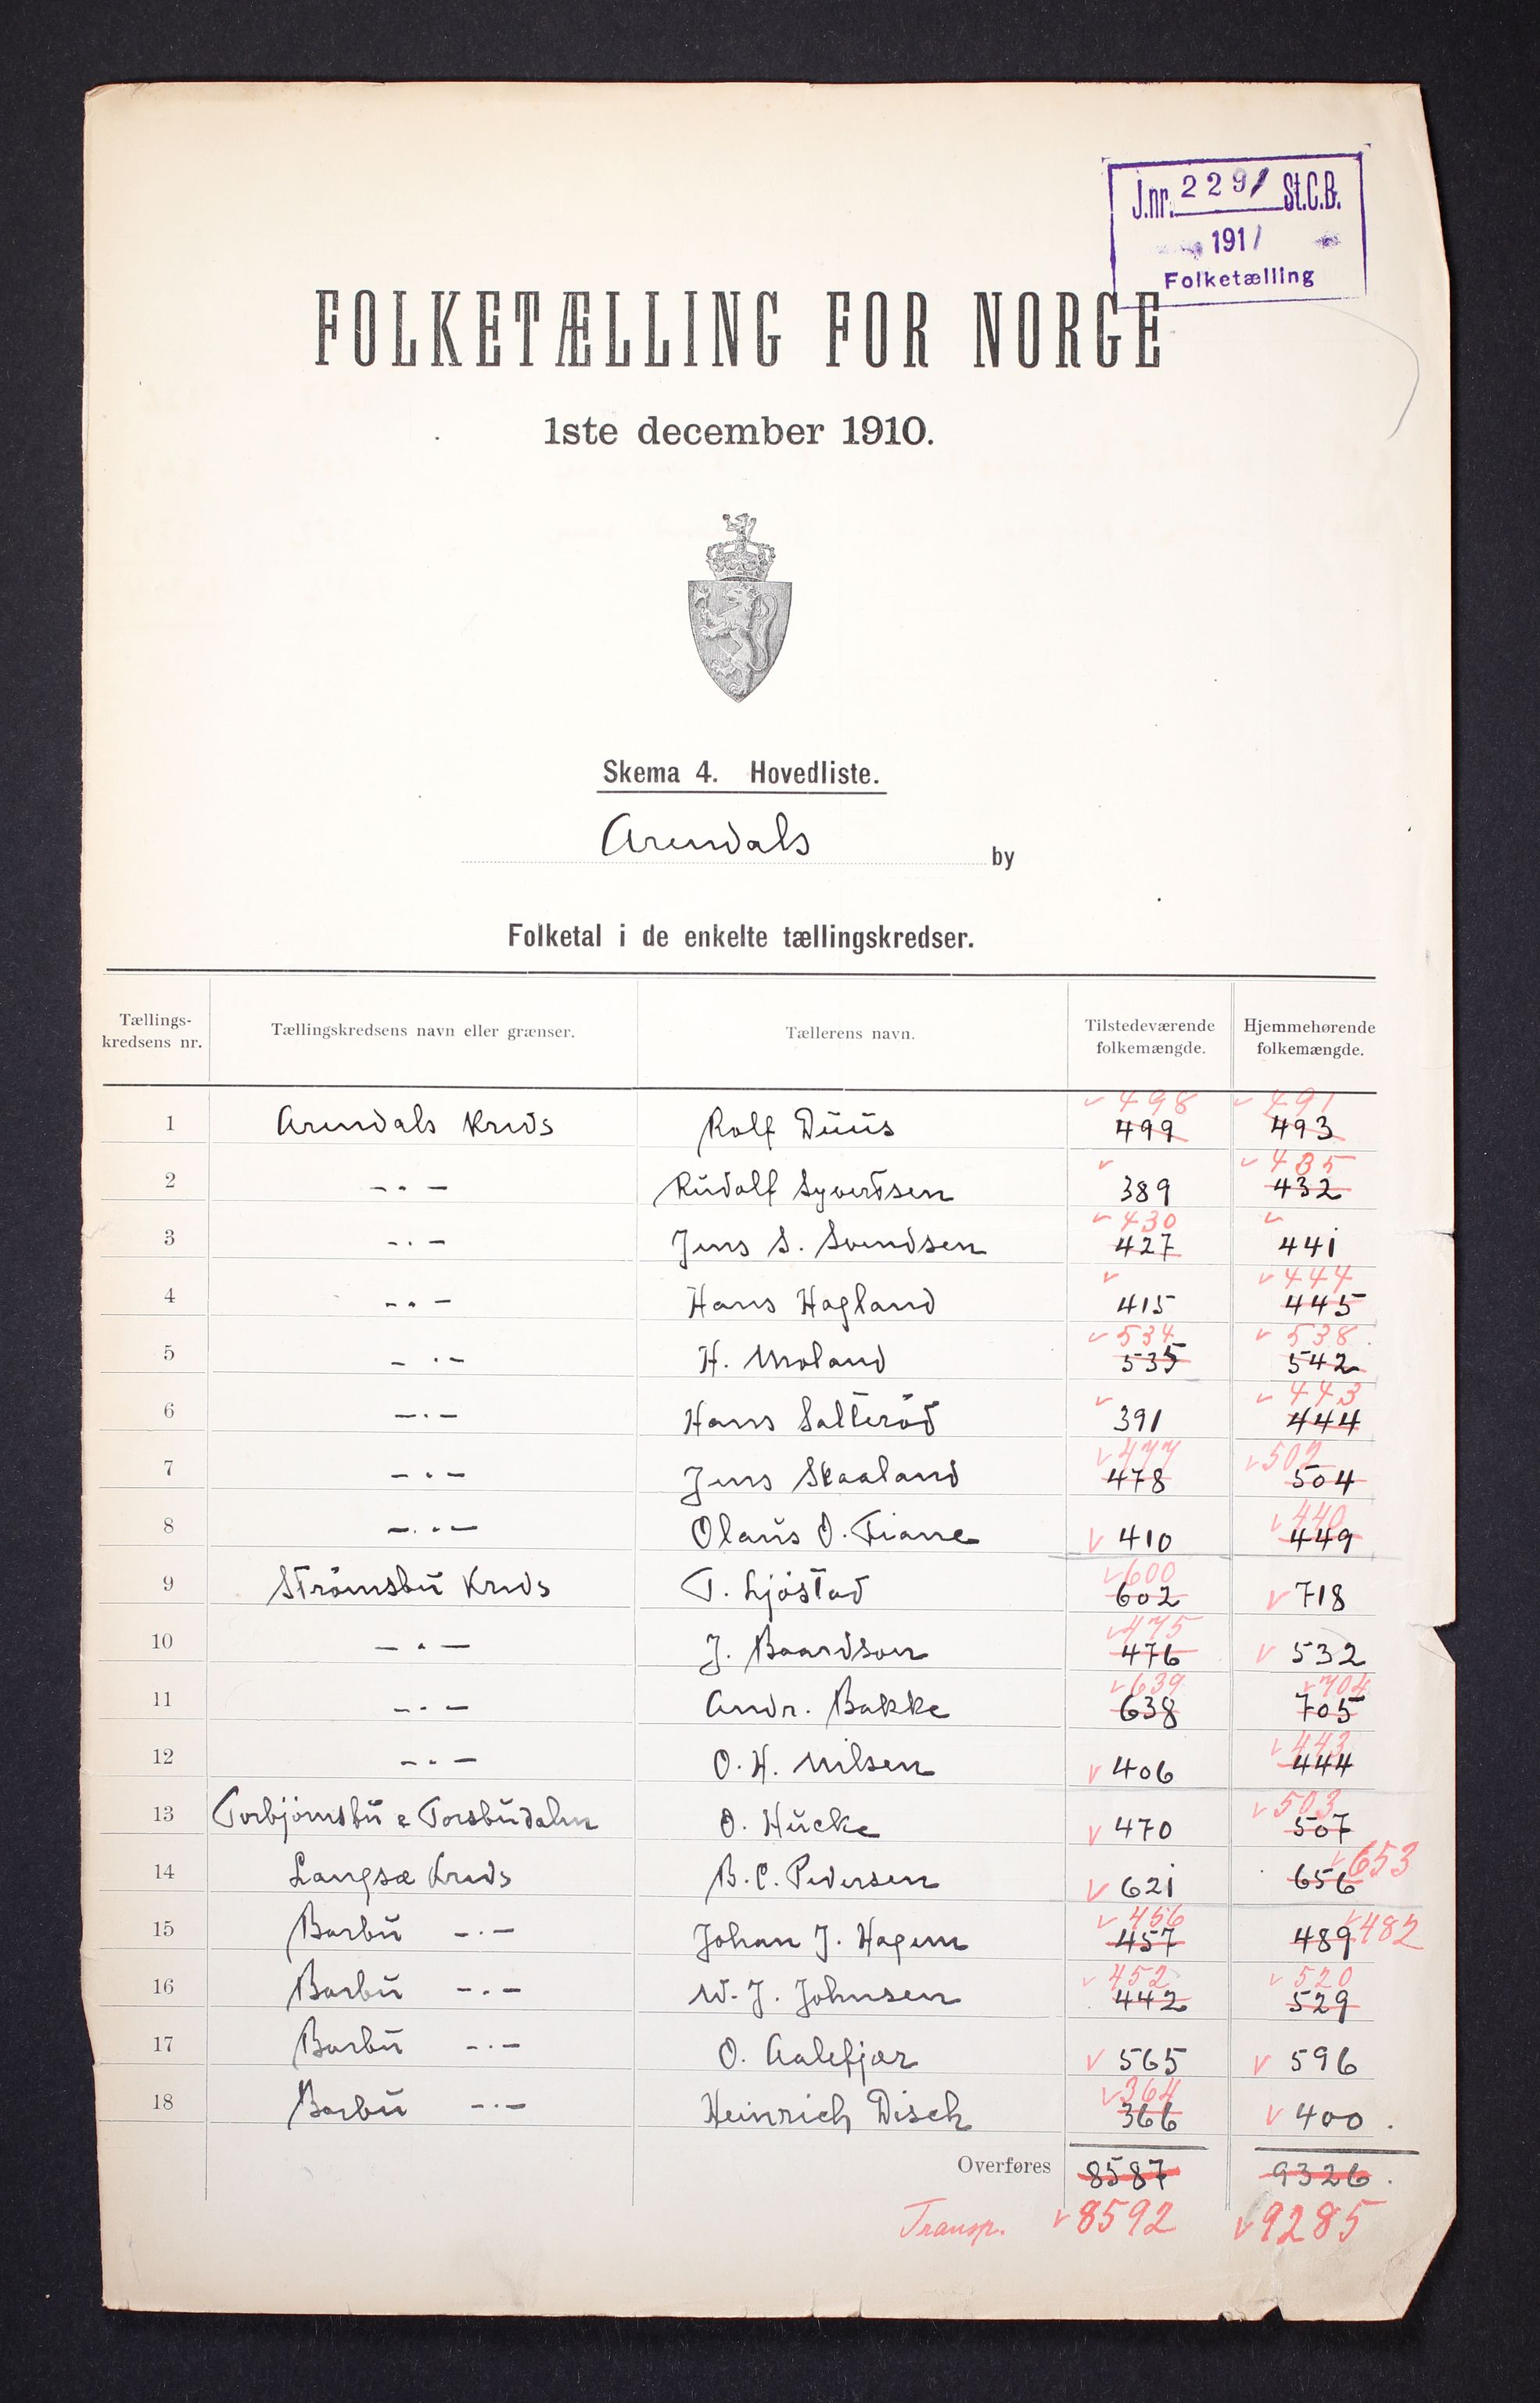 J.nr. 2291 St.C.B.
1911
Folketælling
FOLKETÆLLING FOR NORGE
1ste december 1910.
Skema 4. Hovedliste.
Arendals by
Folketal i de enkelte tællingskredser.
Tællings-kredsens nr. Tællingskredsens navn eller grænser. Tællerens navn. Tilstedeværende folkemængde. Hjemmehørende folkemængde.
v 498 v 491
1 Arendals Kreds Rolf Duus 499 493
v v 435
2 —„— Rudolf Syvertsen 389 432
v 430 v
3 —„— Jens S. Svendsen 427 441
v v 444
4 —„— Hans Hagland 415 445
v 534 v 538
5 —„— H. Moland 535 542
v v 443
6 —„— Hans Salteröd 391 444
v 477 v 502
7 —„— Jens Skaaland 478 504
v 440
8 —„— Olaus O. Fiane v 410 449
v 600
9 Strömsbu Kreds T. Ljöstad 602 v 718
v 475
10 —„— J. Baardson 476 v 532
v 639 v 704
11 —„— Andr. Bakke 638 705
v 443
12 —„— O. H. Nilsen v 406 444
v 503
13 Torbjörnsbu & Torsbudalen O. Hücke v 470 507
v 653
14 Langsæ Kreds B. C. Pedersen v 621 656
v 456 v 482
15 Barbu —„— Johan J. Hagem 457 489
v 452 v 520
16 Barbu —„— W. J. Johnsen 442 529
17 Barbu —„— O. Aalefjær v 565 v 596
v 364
18 Barbu —„— Heinrich Disch 366 v 400.
Overføres 8587 9326.
Transp. v 8592 v 9285